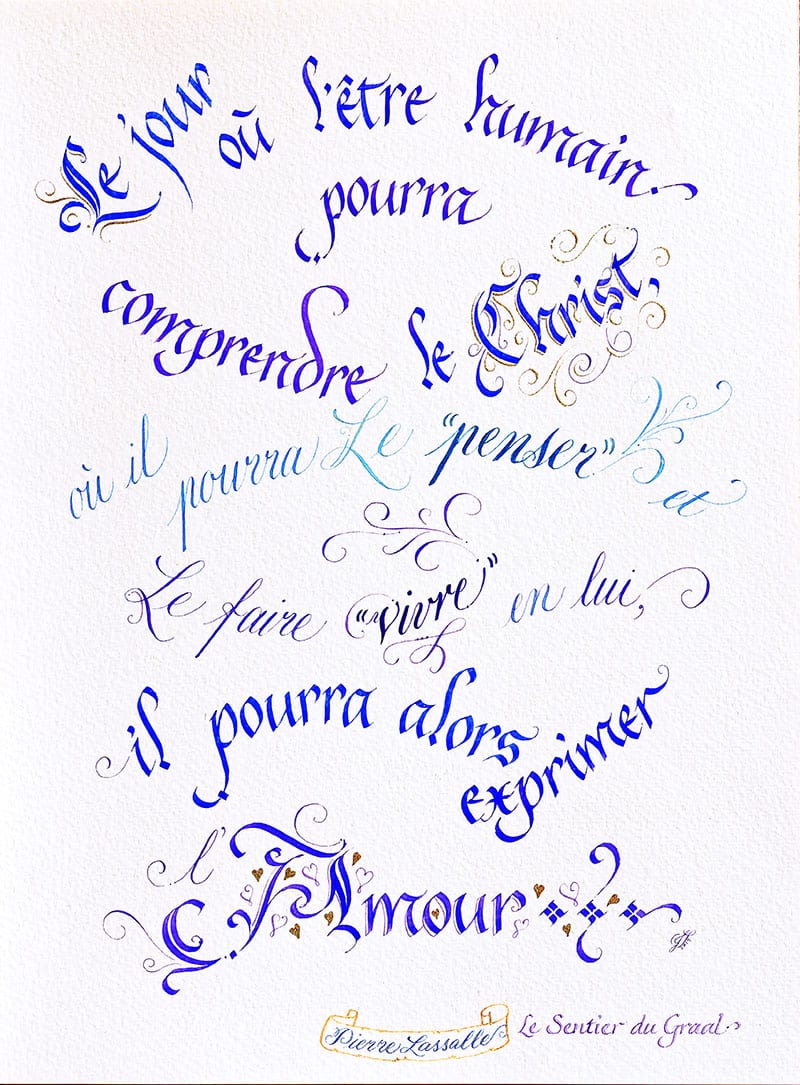 Le jour où l'être humain
pourra
comprendre le Christ,
où il pourra Le "penser" et
Le faire "vivre" en lui,
il pourra alors
exprimer
l'Amour
Pierre Lassalle Le Sentier du Graal